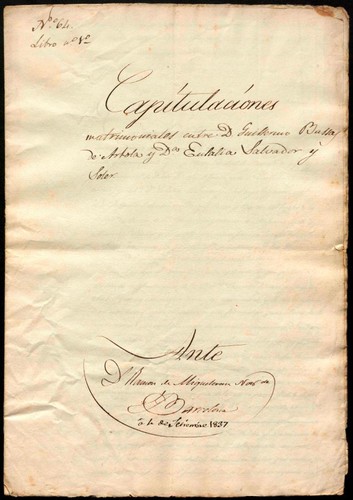 Nº 64.
Libro
Capitulaciones
matrimoniales entre D. Guillermo
de Arbola y Dª Eulalia Salvador y
Soler
Ante
D Ramon de Miquelerena Notº de
Barcelona
Setiembre 1837